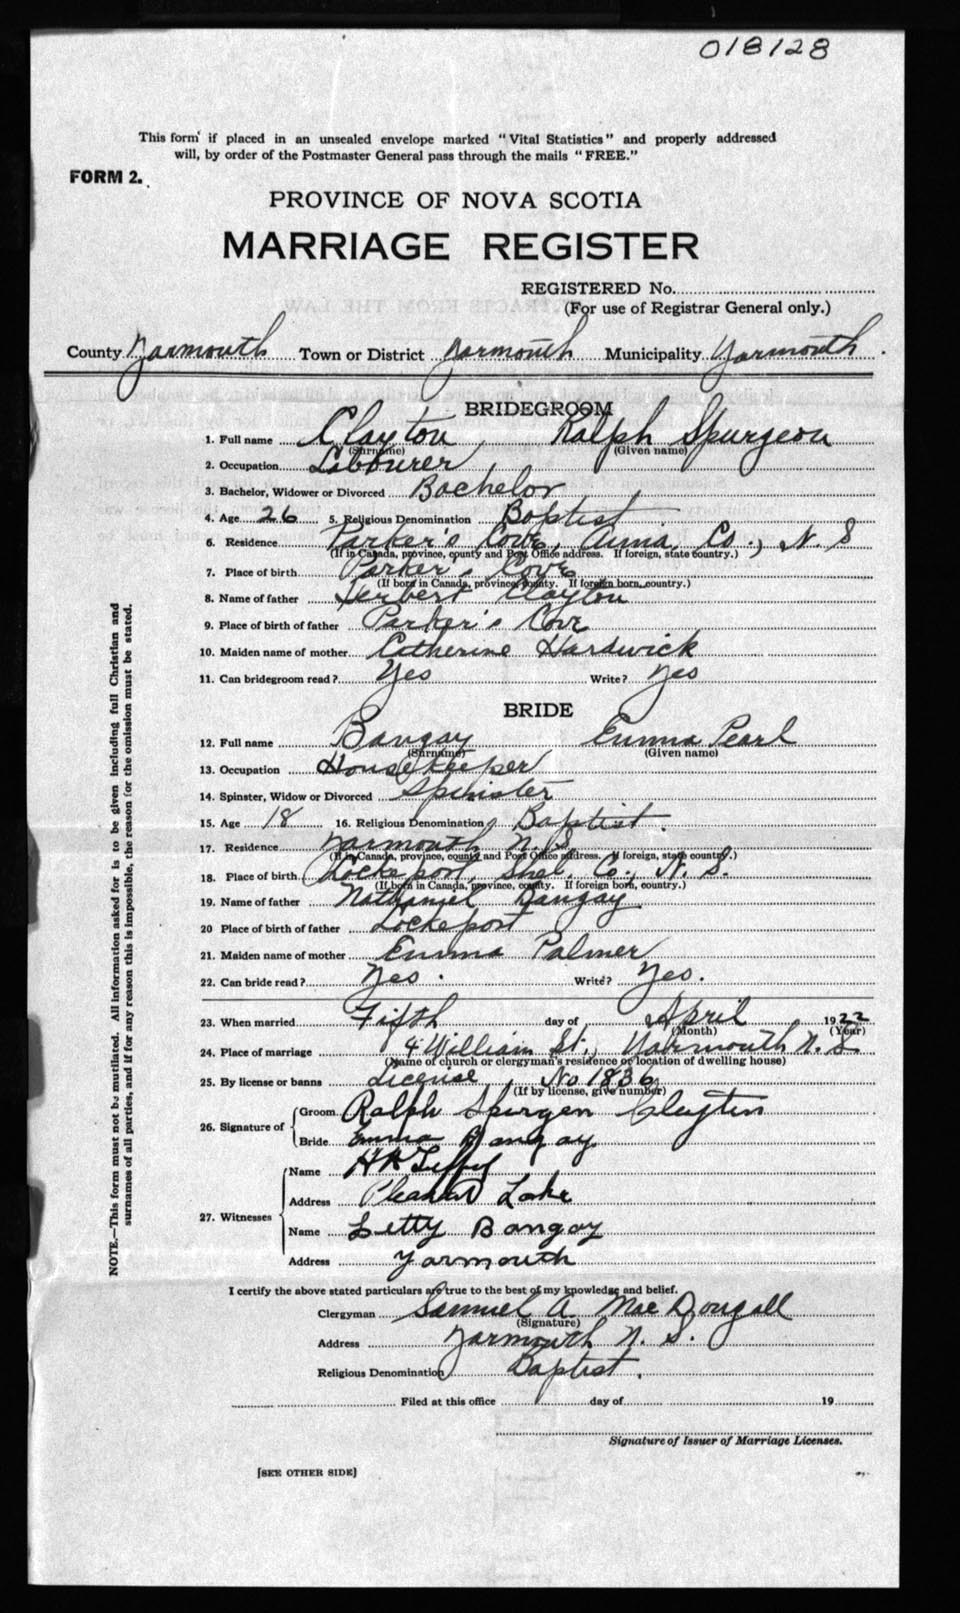 018128
This form if placed in an unsealed envelope marked "Vital Statistics" and properly addressed
will, by order of the Postmaster General pass through the mails "FREE."
FORM 2.
PROVINCE OF NOVA SCOTIA
MARRIAGE REGISTER
REGISTERED No.
(For use of Registrar General only.)
County Yarmouth Town or District Yarmouth Municipality Yarmouth.
BRIDEGROOM
1. Full name Clayton, Ralph Spurgeon
(Surname) (Given name)
2. Occupation Labourer
3. Bachelor, Widower or Divorced Bachelor
4. Age 26 5. Religious Denomination Baptist
6. Residence Parker's Cove, Anna. Co., N. S
(If in Canada, province, county and Post Office address. If foreign, state country.)
7. Place of birth Parker's Cove
(If born in Canada, province, county. If foreign born, country.)
8. Name of father Herbert Clayton
9. Place of birth of father Parker's Cove
10. Maiden name of mother Catherine Hardwick
11. Can bridegroom read? Yes Write? Yes
BRIDE
12. Full name Bangay Emma Pearl
(Surname) (Given name)
13. Occupation Housekeeper
14. Spinster, Widow or Divorced Spinister
15. Age 18 16. Religious Denomination Baptist.
17. Residence Yarmouth N. S.
(If in Canada, province, county and Post Office address. If foreign, state country.)
18. Place of birth Lockeport, Shel. Co., N. S.
(If born in Canada, province, county. If foreign born, country.)
19. Name of father Nathaniel Bangay
20 Place of birth of father Lockeport
21. Maiden name of mother Emma Palmer
22. Can bride read? Yes. Write? Yes.
23. When married Fifth day of April 1922
(Month) (Year)
24. Place of marriage 4 William St., Yarmouth N. S.
(Name of church or clergyman's residence or location of dwelling house)
25. By license or banns License, No 1836
(If by license, give number)
26. Signature of
Groom Ralph Spurgen Clayton
Bride Emma Bangay
27. Witnesses
Name H H
Address Pleasant Lake
Name Letty Bangay
Address Yarmouth
I certify the above stated particulars are true to the best of my knowledge and belief.
Clergyman Samuel A. MacDougall
(Signature)
Address Yarmouth N. S.
Religious Denomination Baptist.
Filed at this office day of 19
Signature of Issuer of Marriage Licenses.
[SEE OTHER SIDE]
NOTE.—This form must not be mutilated. All information asked for is to be given including full Christian and
surnames of all parties, and if for any reason this is impossible, the reason for the omission must be stated.